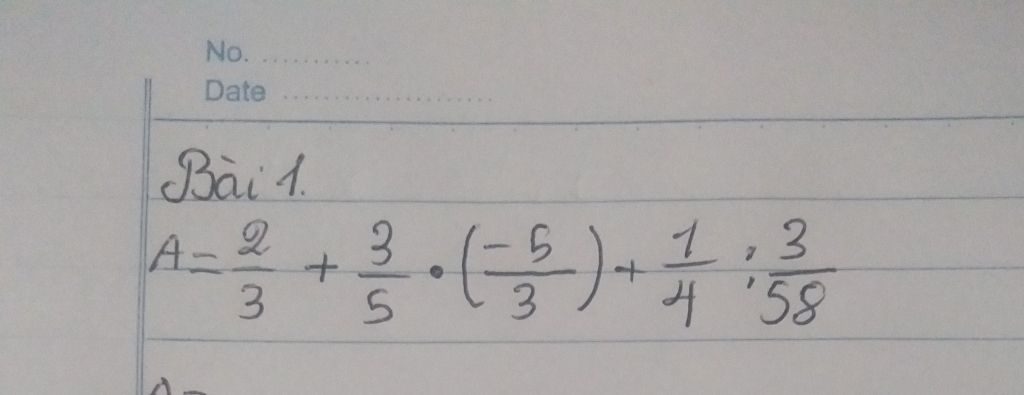 No. ...........
Date .....................
Bài 1.
A = 2/3 + 3/5 • (-5/3) + 1/4 : 3/58